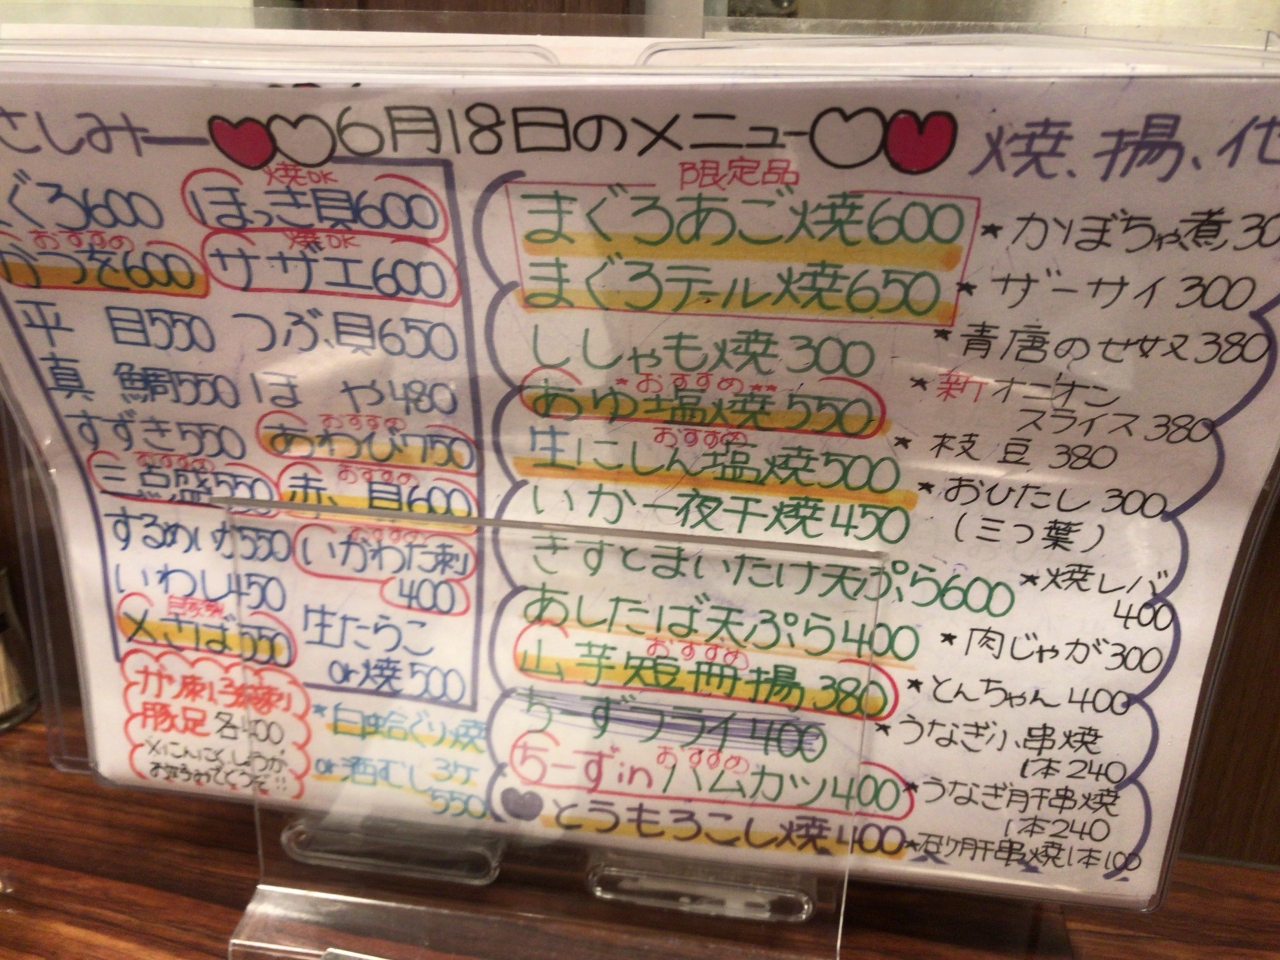 さしみ
6月18日のメニュー
焼、揚、
ぐろ600
焼OK
ほっき貝600
おすすめ
かつを600
焼OK
サザエ600
平目550
つぶ貝650
真鯛550
ほや480
すずき550
おすすめ
あわび750
おすすめ
三点盛550
おすすめ
赤貝600
するめいか550
おすすめ
いかわた刺
400
いわし450
自家製
〆さば550
生たらこ
or焼500
ガツ刺
豚足 各400
※にんにく、しょうが、
お好みでどうぞ!!
*白蛤ぐり焼
or酒むし3ケ
550
限定品
まぐろあご焼600
まぐろテール焼650
ししゃも焼300
*おすすめ**
あゆ塩焼550
おすすめ
生にしん塩焼500
いか一夜干焼450
きすとまいたけ天ぷら600
あしたば天ぷら400
おすすめ
山芋短冊揚380
ちーずフライ400
おすすめ
ちーずinハムカツ400
とうもろこし焼400
★かぼちゃ煮30
★ザーサイ300
★青唐のせ奴380
★新オニオン
スライス380
★枝豆380
★おひたし300
(三つ葉)
★焼レバ
400
★肉じゃが300
★とんちゃん400
★うなぎ小串焼
1本240
★うなぎ肝串焼
1本240
1本100